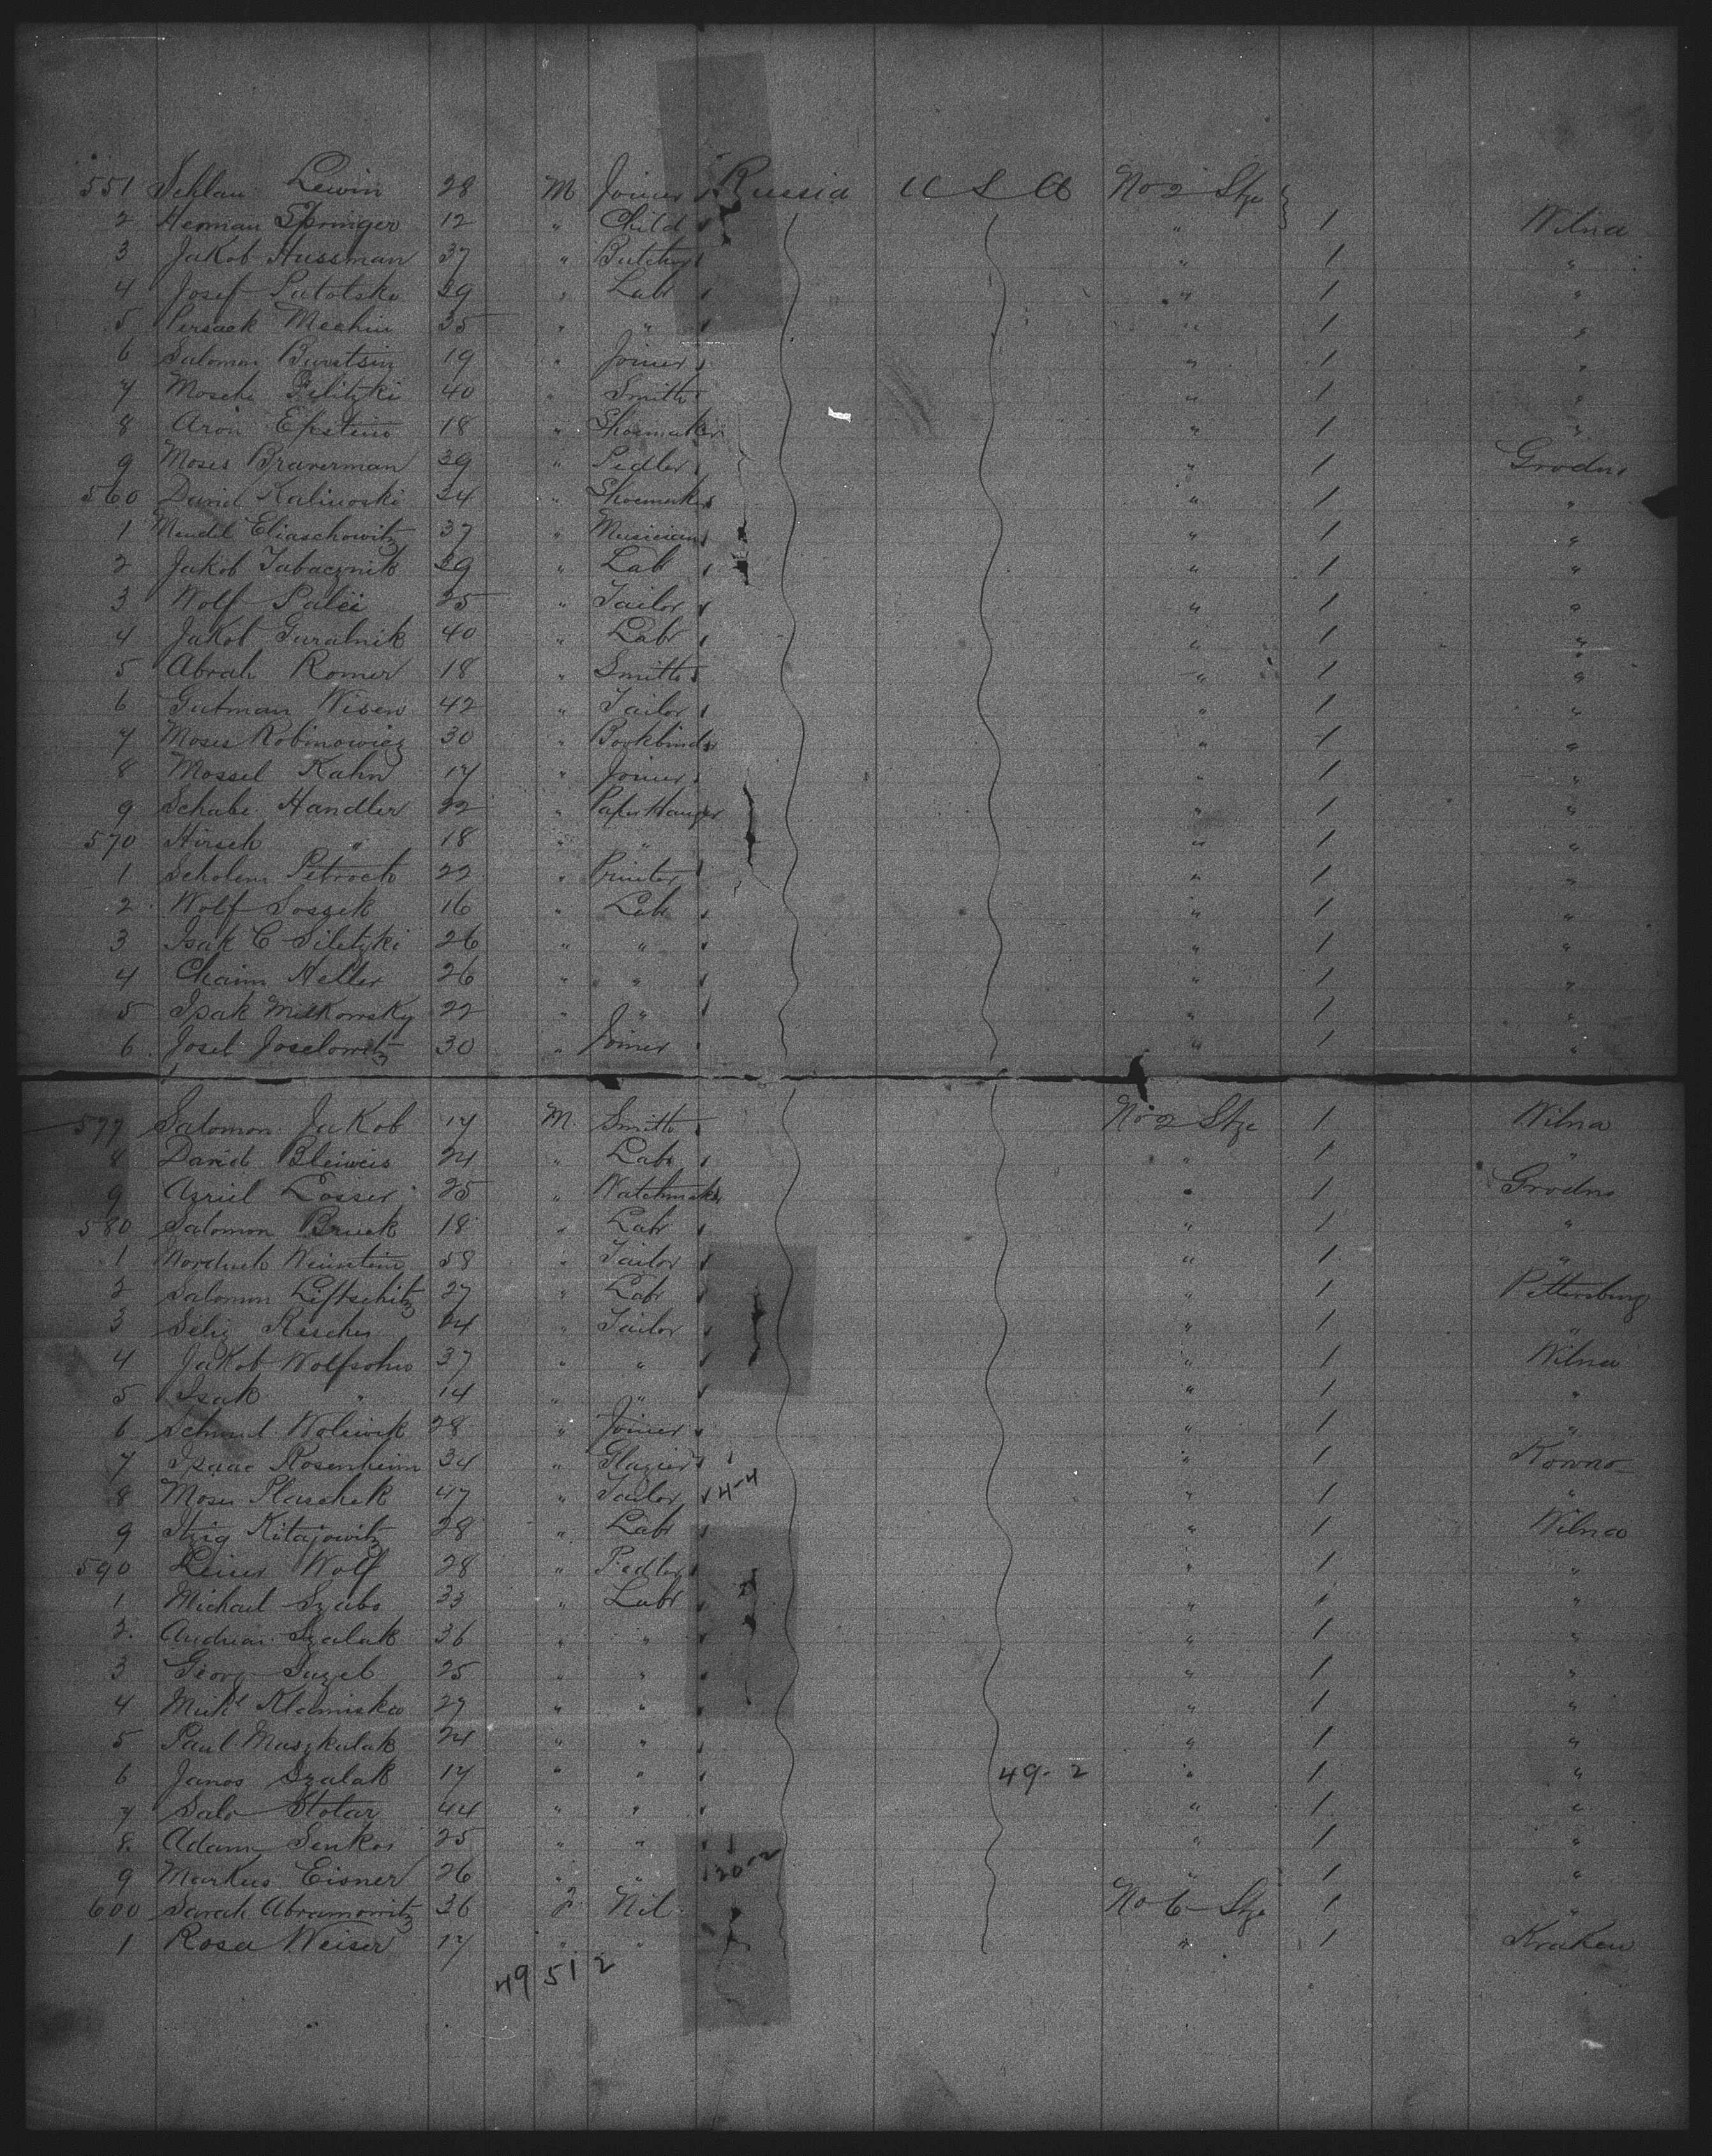 551 Schlau Lewin 28 M Joiner Russia U S A No 2 Stge
2 Herman Springer 12 " Child " 1 Wilna
3 Jakob Hussman 37 " Butcher " 1 "
4 Josef 39 " Labr " 1 "
5 35 " " " 1 "
6 Salomon 19 " Joiner " 1 "
7 Mosche 40 " Smith " 1 "
8 Aron Epstein 18 " Shoemaker " 1 "
9 Moses Braverman 39 " Pedler " 1 Grodno
560 David Kalinoski 34 " Shoemaker " 1 "
1 Mendel Eliaschowitz 37 " Musician " 1 "
2 Jakob Tabacznik 39 " Lab " 1 "
3 Wolf 25 " Tailor " 1 "
4 Jakob Guralnik 40 " Labr " 1 "
5 Abrah Romer 18 " Smith " 1 "
6 Gutman Wisen 42 " Tailor " 1 "
7 Moses Robinowicz 30 " Bookbinder " 1 "
8 Mossel Kahn 17 " Joiner " 1 "
9 Schabe Handler 22 " Paper Hanger " 1 "
570 Hirsch " 18 " " " 1 "
1 Scholem 22 " Printer " 1 "
2 Wolf 16 " Lab " 1 "
3 Isak C Siletzki 26 " " " 1 "
4 Chaim Heller 26 " " " 1 "
5 Isak Milkowsky 22 " " " 1 "
6 Josel Joselowitz 30 " Joiner " 1 "
577 Salomon Jakob 17 M Smith No 2 Stge 1 Wilna
8 David Bleiweis 24 " Labr " 1 "
9 Azriel Losser 25 " Watchmaker " 1 Grodno
580 Salomon Bruck 18 " Labr " 1 "
1 Weinstein 58 " Tailor " 1 "
2 Salomon Liftschitz 27 " Labr " 1 Pettersburg
3 Selig " Tailor " 1 "
4 Jakob Wolfsohn 37 " " " 1 Wilna
5 Isak " 14 " " " 1 "
6 Schmul 28 " Joiner " 1 "
7 Isaac Rosenheim 34 " Glazier " 1 Kowno
8 Moses 47 " Tailor 4-4 " 1 "
9 Itzig Kitajowitz 28 " Labr " 1 Wilna
590 Leiser Wolf 28 " Pedler " 1 "
1 Michael Szabo 33 " Labr " 1 "
2 Andreas Szalak 36 " " " 1 "
3 Georg 25 " " " 1 "
4 27 " " " 1 "
5 Paul Muszkulak 24 " " " 1 "
6 Janos Szalak 17 " " 49-2 " 1 "
7 Salo Stolar 44 " " " 1 "
8 Adam Senkos 25 " " " 1 "
9 Markus Eisner 26 " " " 1 "
600 Sarah Abramowitz 36 F Nil No 6 Stge 1 "
1 Rosa Weiser 17 " " " 1 Kraken
49 51 2